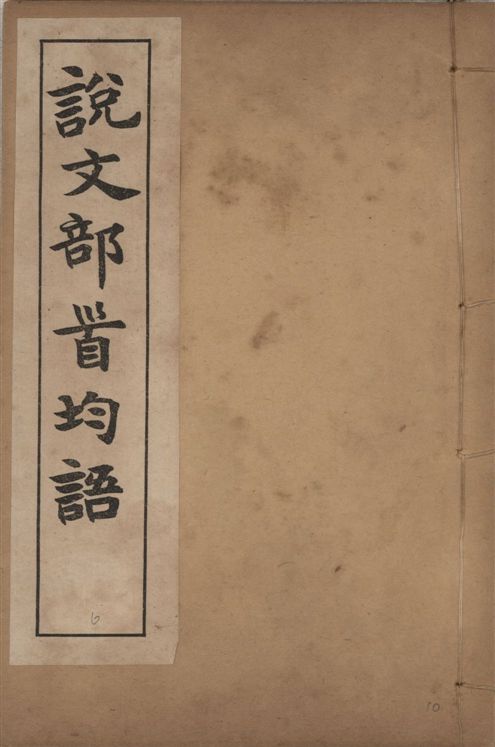 說文部𩠐均語
6
10